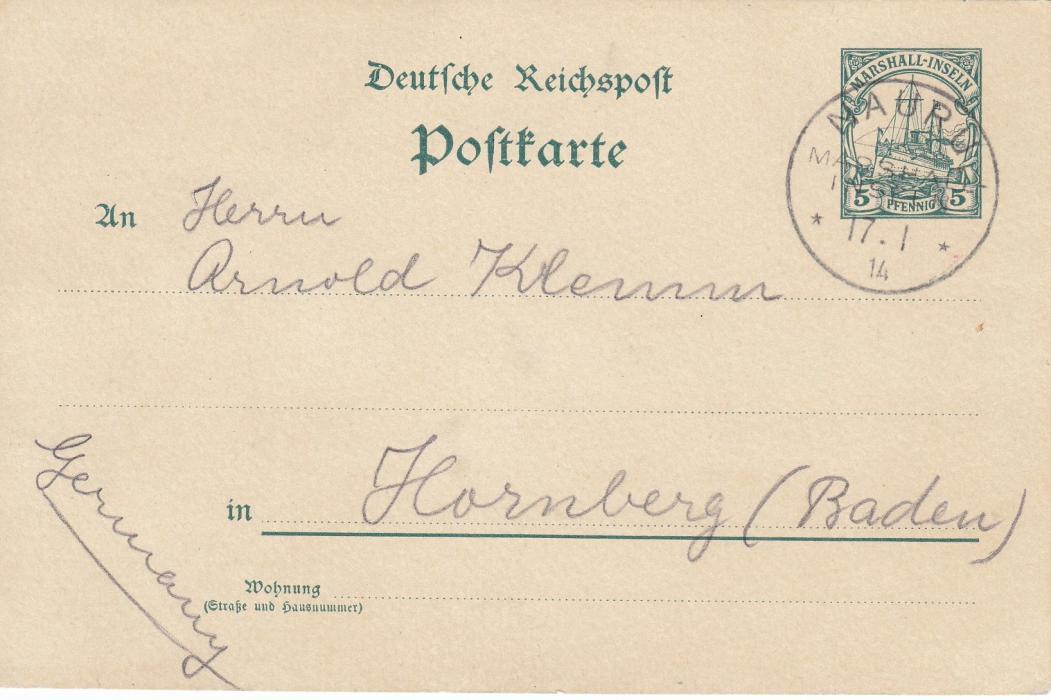 Deutsche Reichspost
Postkarte
MARSHALL-INSELN
5 PFENNIG 5
NAURU
MARSHALL
INSELN
* 17.1 *
14
An Herrn
Arnold Klemm
in Hornberg (Baden)
Germany
Wohnung
(Straße und Hausnummer)